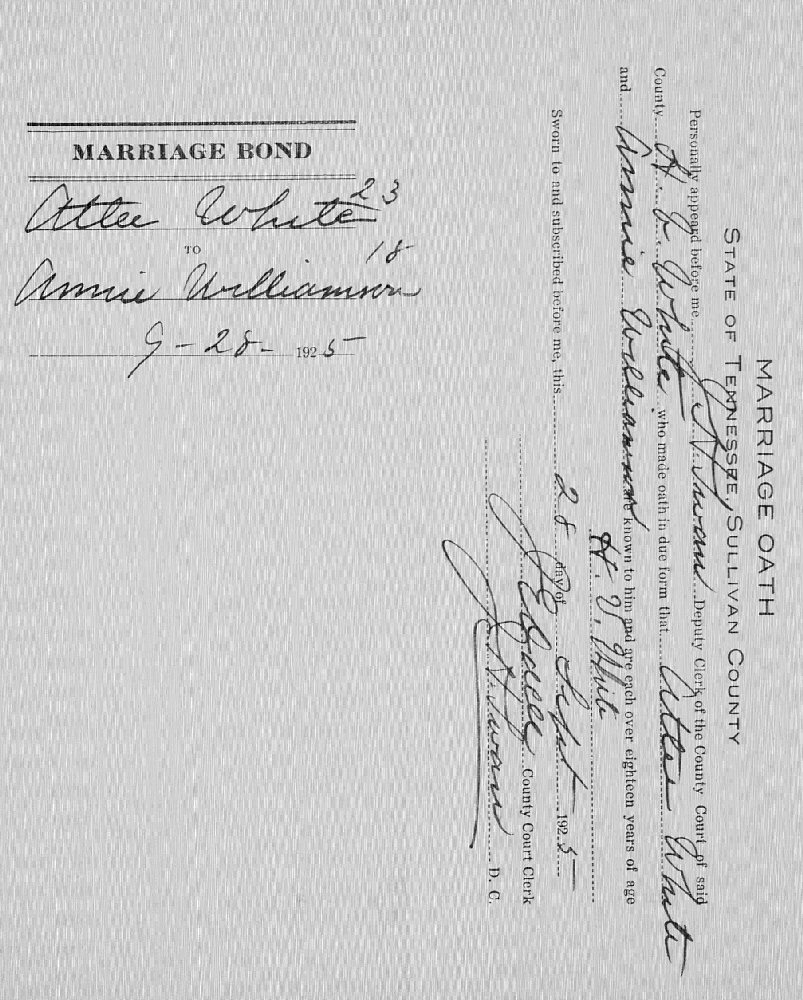 MARRIAGE BOND
Atlee White 23
TO
Annie Williamson 18
9-28- 1925
MARRIAGE OATH
STATE OF TENNESSEE, SULLIVAN COUNTY
Personally appeard before me J H Swan Deputy Clerk of the County Court of said
County H. V. White who made oath in due form that Atlee White
and Annie Williamson are known to him and are each over eighteen years of age
H. V. White
Sworn to and subscribed before me, this 28 day of Sept 1925
County Court Clerk
J H Swan D. C.